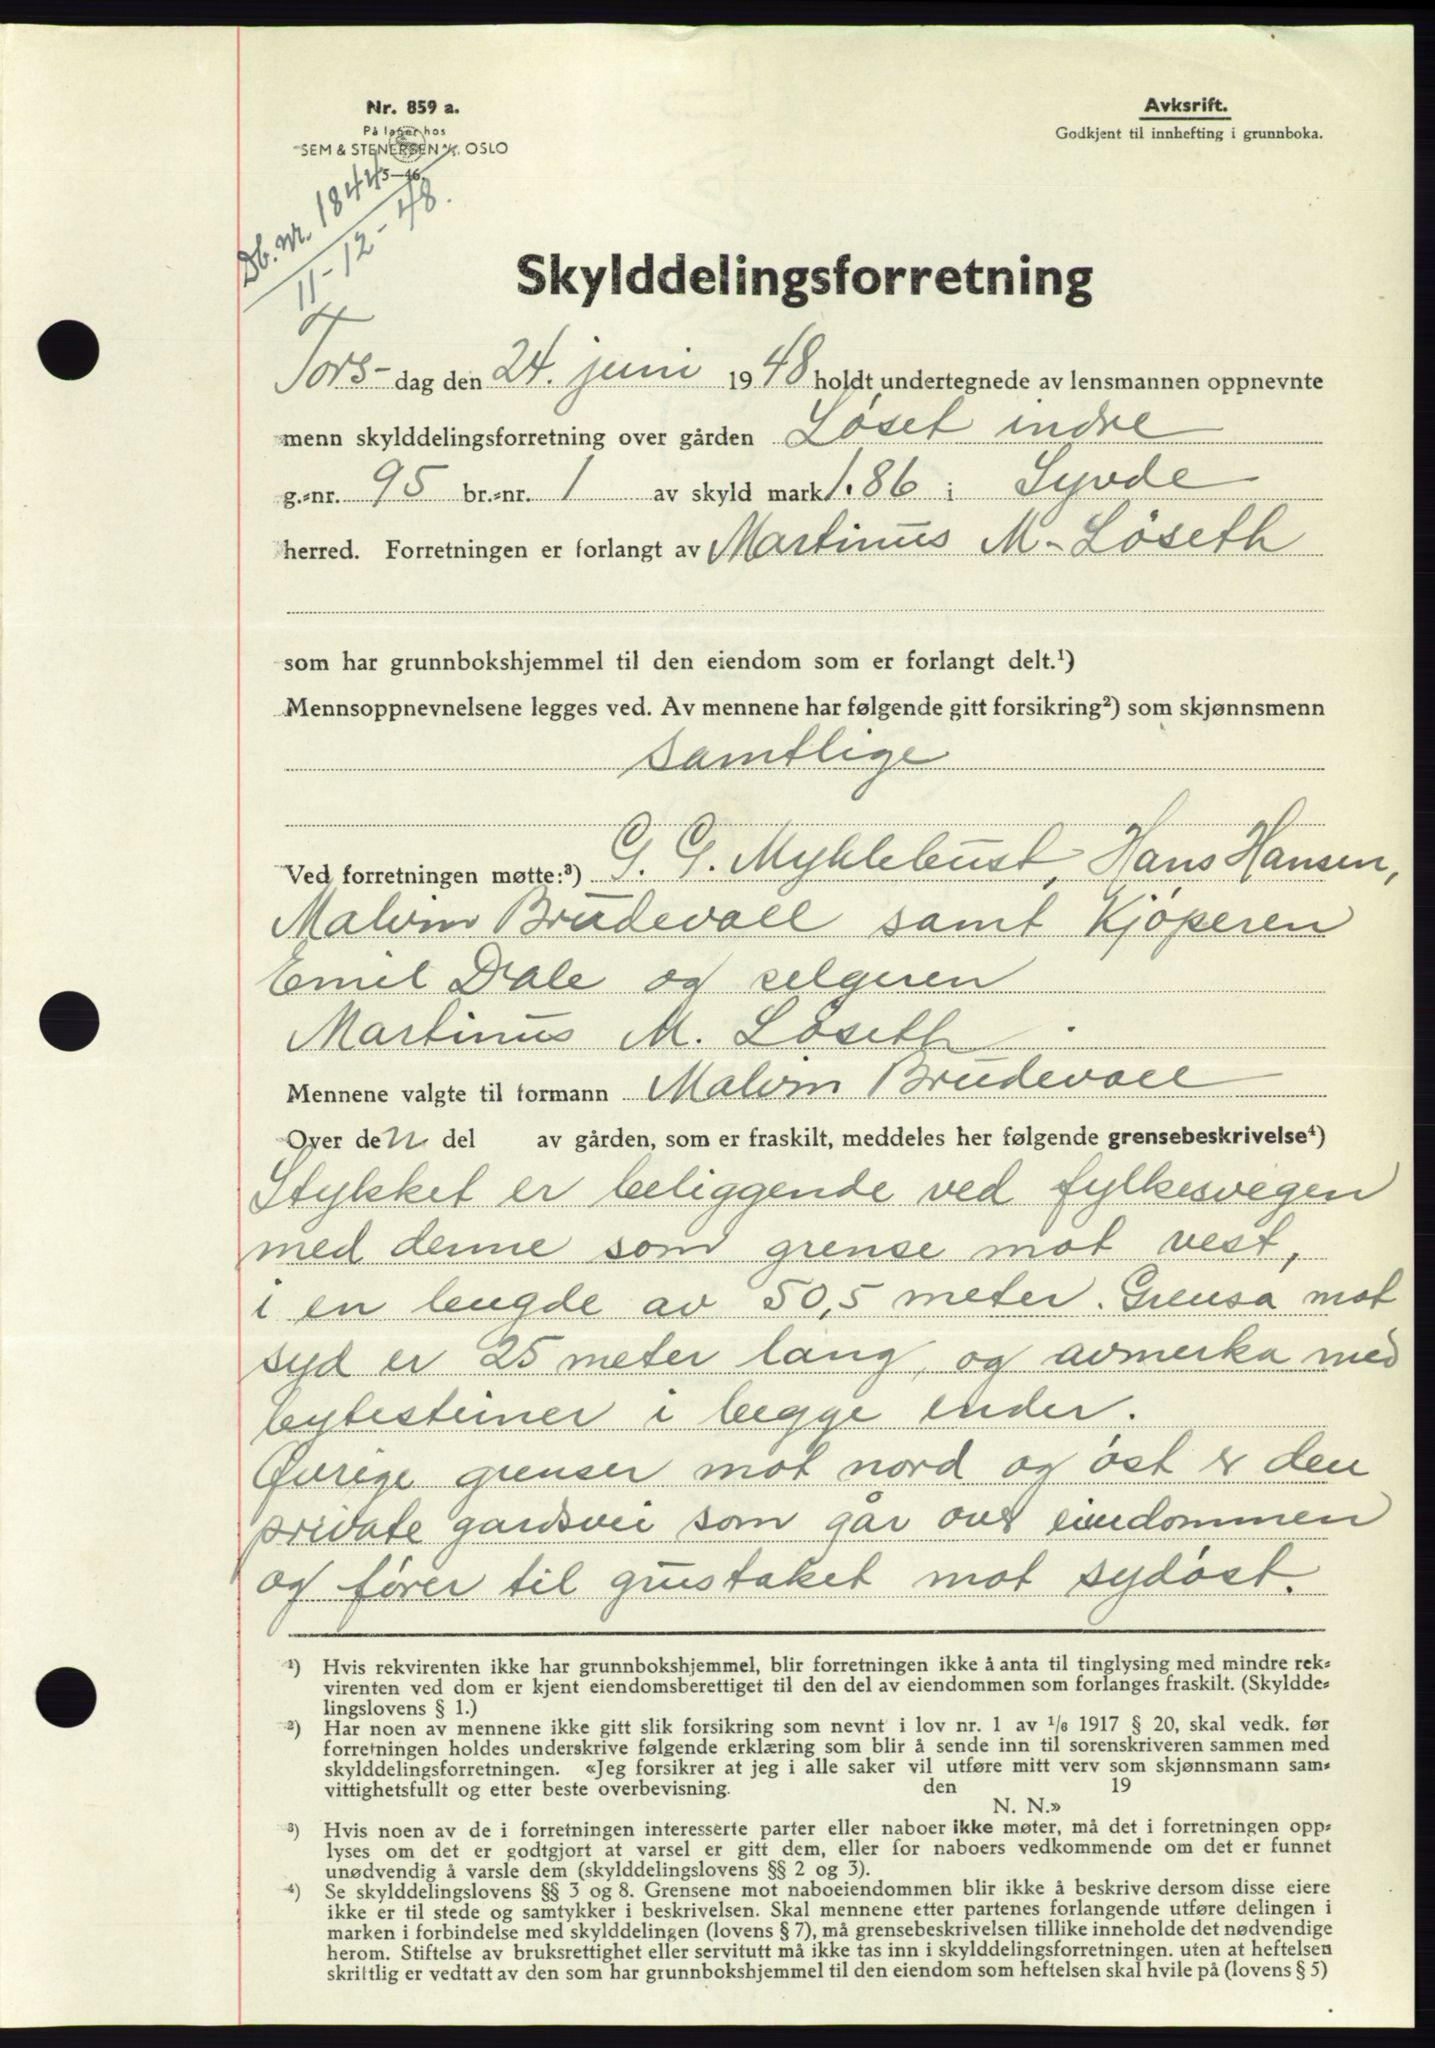 Nr. 859 a.
På lager hos
SEM & STENERSEN A/S, OSLO
5—46.
Db. nr. 1844
11-12-48.
Avksrift.
Godkjent til innhefting i grunnboka.
Skylddelingsforretning
Tors- dag den 24. juni 1948 holdt undertegnede av lensmannen oppnevnte
menn skylddelingsforretning over gården Löset indre
g.=nr. 95 br.=nr. 1 av skyld mark 1.86 i Syvde
herred. Forretningen er forlangt av Martinus M. Löseth
som har grunnbokshjemmel til den eiendom som er forlangt delt.¹)
Mennsoppnevnelsene legges ved. Av mennene har følgende gitt forsikring²) som skjønnsmenn
samtlige
Ved forretningen møtte:³) G. G. Myklebust, Hans Hansen,
Malvin Brudevoll samt Kjöperen
Emil Dale og selgeren
Martinus M. Löseth.
Mennene valgte til formann Malvin Brudevoll
Over den del av gården, som er fraskilt, meddeles her følgende grensebeskrivelse⁴)
Stykket er beliggende ved fylkesvegen
med denne som grense mot vest,
i en lengde av 50,5 meter. Grensa mot
syd er 25 meter lang, og avmerka med
bytesteiner i begge ender.
Øvrige grenser mot nord og öst er den
private gardsvei som går over eiendommen
og förer til grustaket mot sydöst.
¹) Hvis rekvirenten ikke har grunnbokshjemmel, blir forretningen ikke å anta til tinglysing med mindre rek=
virenten ved dom er kjent eiendomsberettiget til den del av eiendommen som forlanges fraskilt. (Skyldde=
lingslovens § 1.)
²) Har noen av mennene ikke gitt slik forsikring som nevnt i lov nr. 1 av 1/6 1917 § 20, skal vedk. før
forretningen holdes underskrive følgende erklæring som blir å sende inn til sorenskriveren sammen med
skylddelingsforretningen. «Jeg forsikrer at jeg i alle saker vil utføre mitt verv som skjønnsmann sam=
vittighetsfullt og etter beste overbevisning. den 19
N. N.»
³) Hvis noen av de i forretningen interesserte parter eller naboer ikke møter, må det i forretningen opp=
lyses om det er godtgjort at varsel er gitt dem, eller for naboers vedkommende om det er funnet
unødvendig å varsle dem (skylddelingslovens §§ 2 og 3).
⁴) Se skylddelingslovens §§ 3 og 8. Grensene mot naboeiendommen blir ikke å beskrive dersom disse eiere
ikke er til stede og samtykker i beskrivelsen. Skal mennene etter partenes forlangende utføre delingen i
marken i forbindelse med skylddelingen (lovens § 7), må grensebeskrivelsen tillike inneholde det nødvendige
herom. Stiftelse av bruksrettighet eller servitutt må ikke tas inn i skylddelingsforretningen. uten at heftelsen
skriftlig er vedtatt av den som har grunnbokshjemmel til den eiendom som heftelsen skal hvile på (lovens § 5)